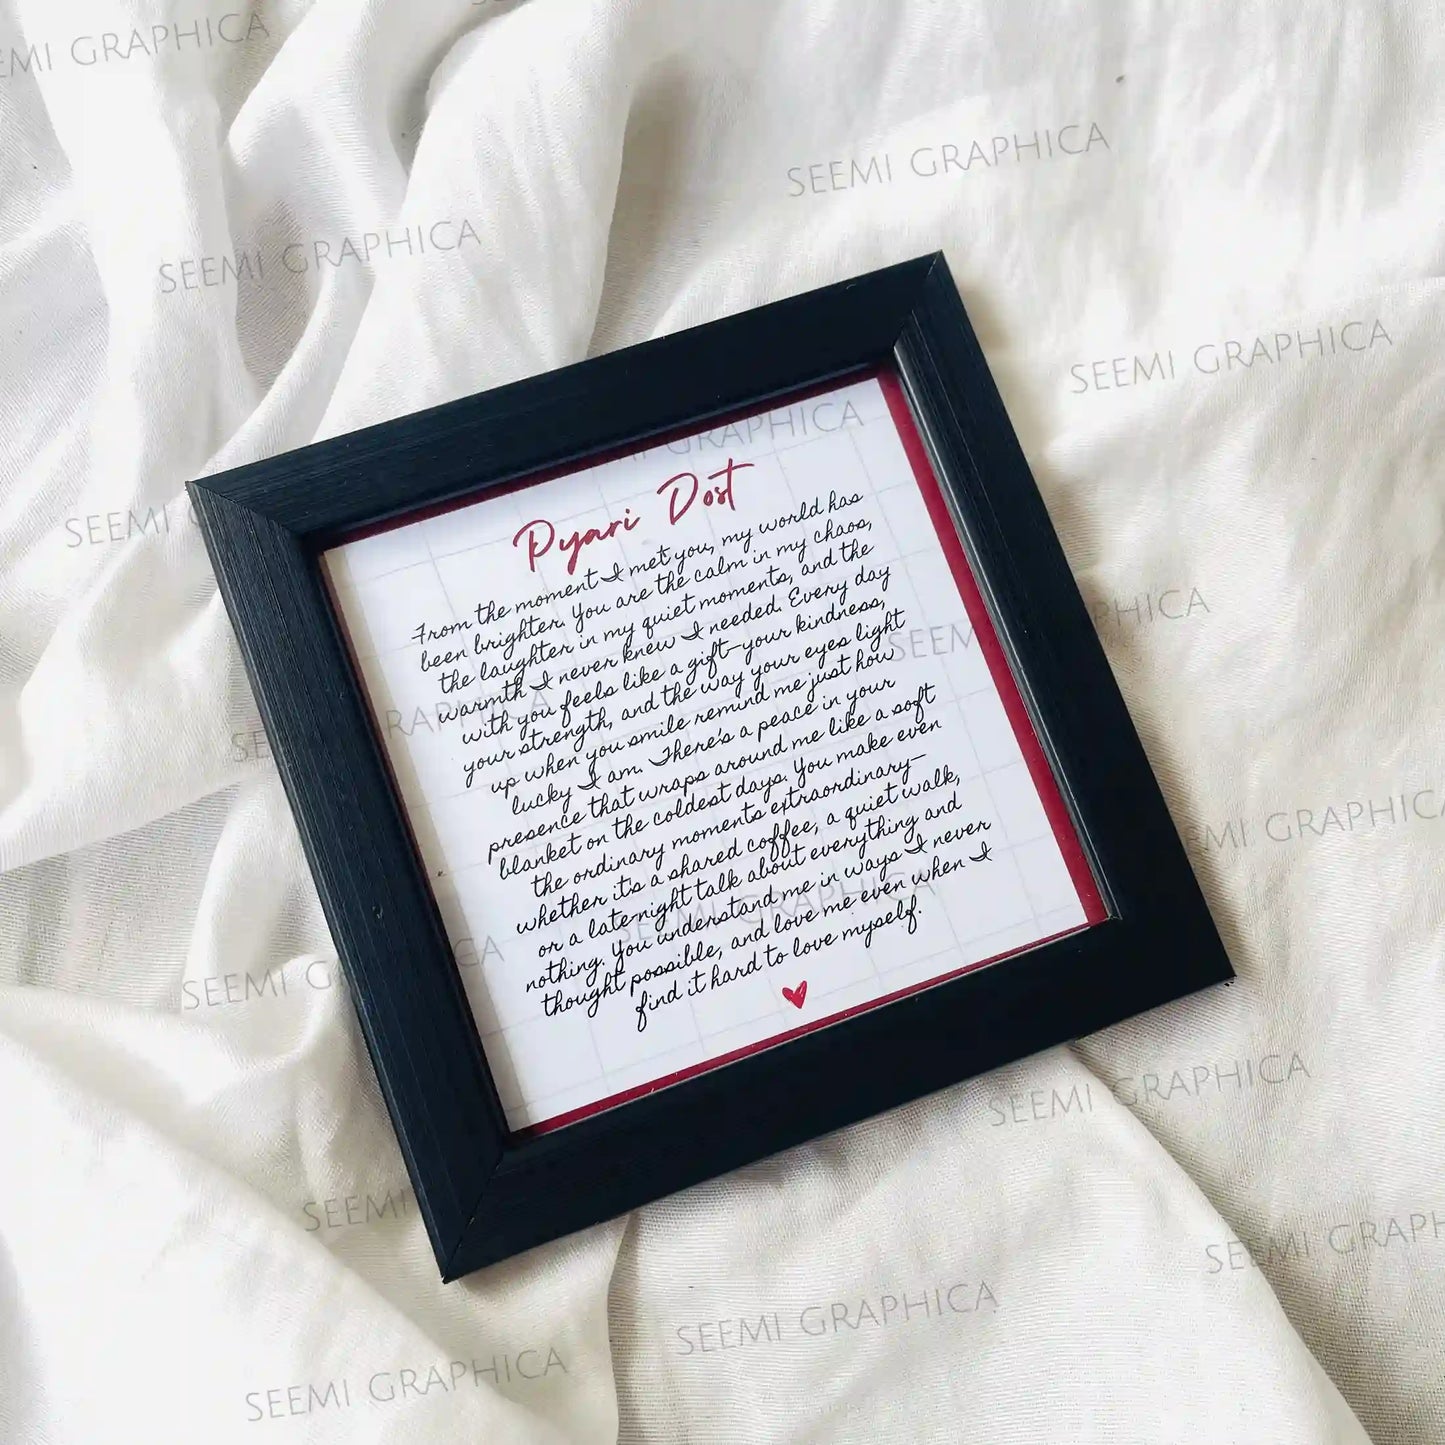 SEEMI GRAPHICA
SEEMI GRAPHICA
SEEMI GRAPHICA
SEEMI GRAPHICA
Pyari Dost
From the moment I met you, my world has
been brighter. You are the calm in my chaos,
the laughter in my quiet moments, and the
warmth I never knew I needed. Every day
with you feels like a gift—your kindness,
your strength, and the way your eyes light
up when you smile remind me just how
lucky I am. There's a peace in your
presence that wraps around me like a soft
blanket on the coldest days. You make even
the ordinary moments extraordinary—
whether it's a shared coffee, a quiet walk,
or a late-night talk about everything and
nothing. You understand me in ways I never
thought possible, and love me even when I
find it hard to love myself.
SEEMI GRAPHICA
SEEMI GRAPHICA
SEEMI GRAPHICA
SEEMI GRAPHICA